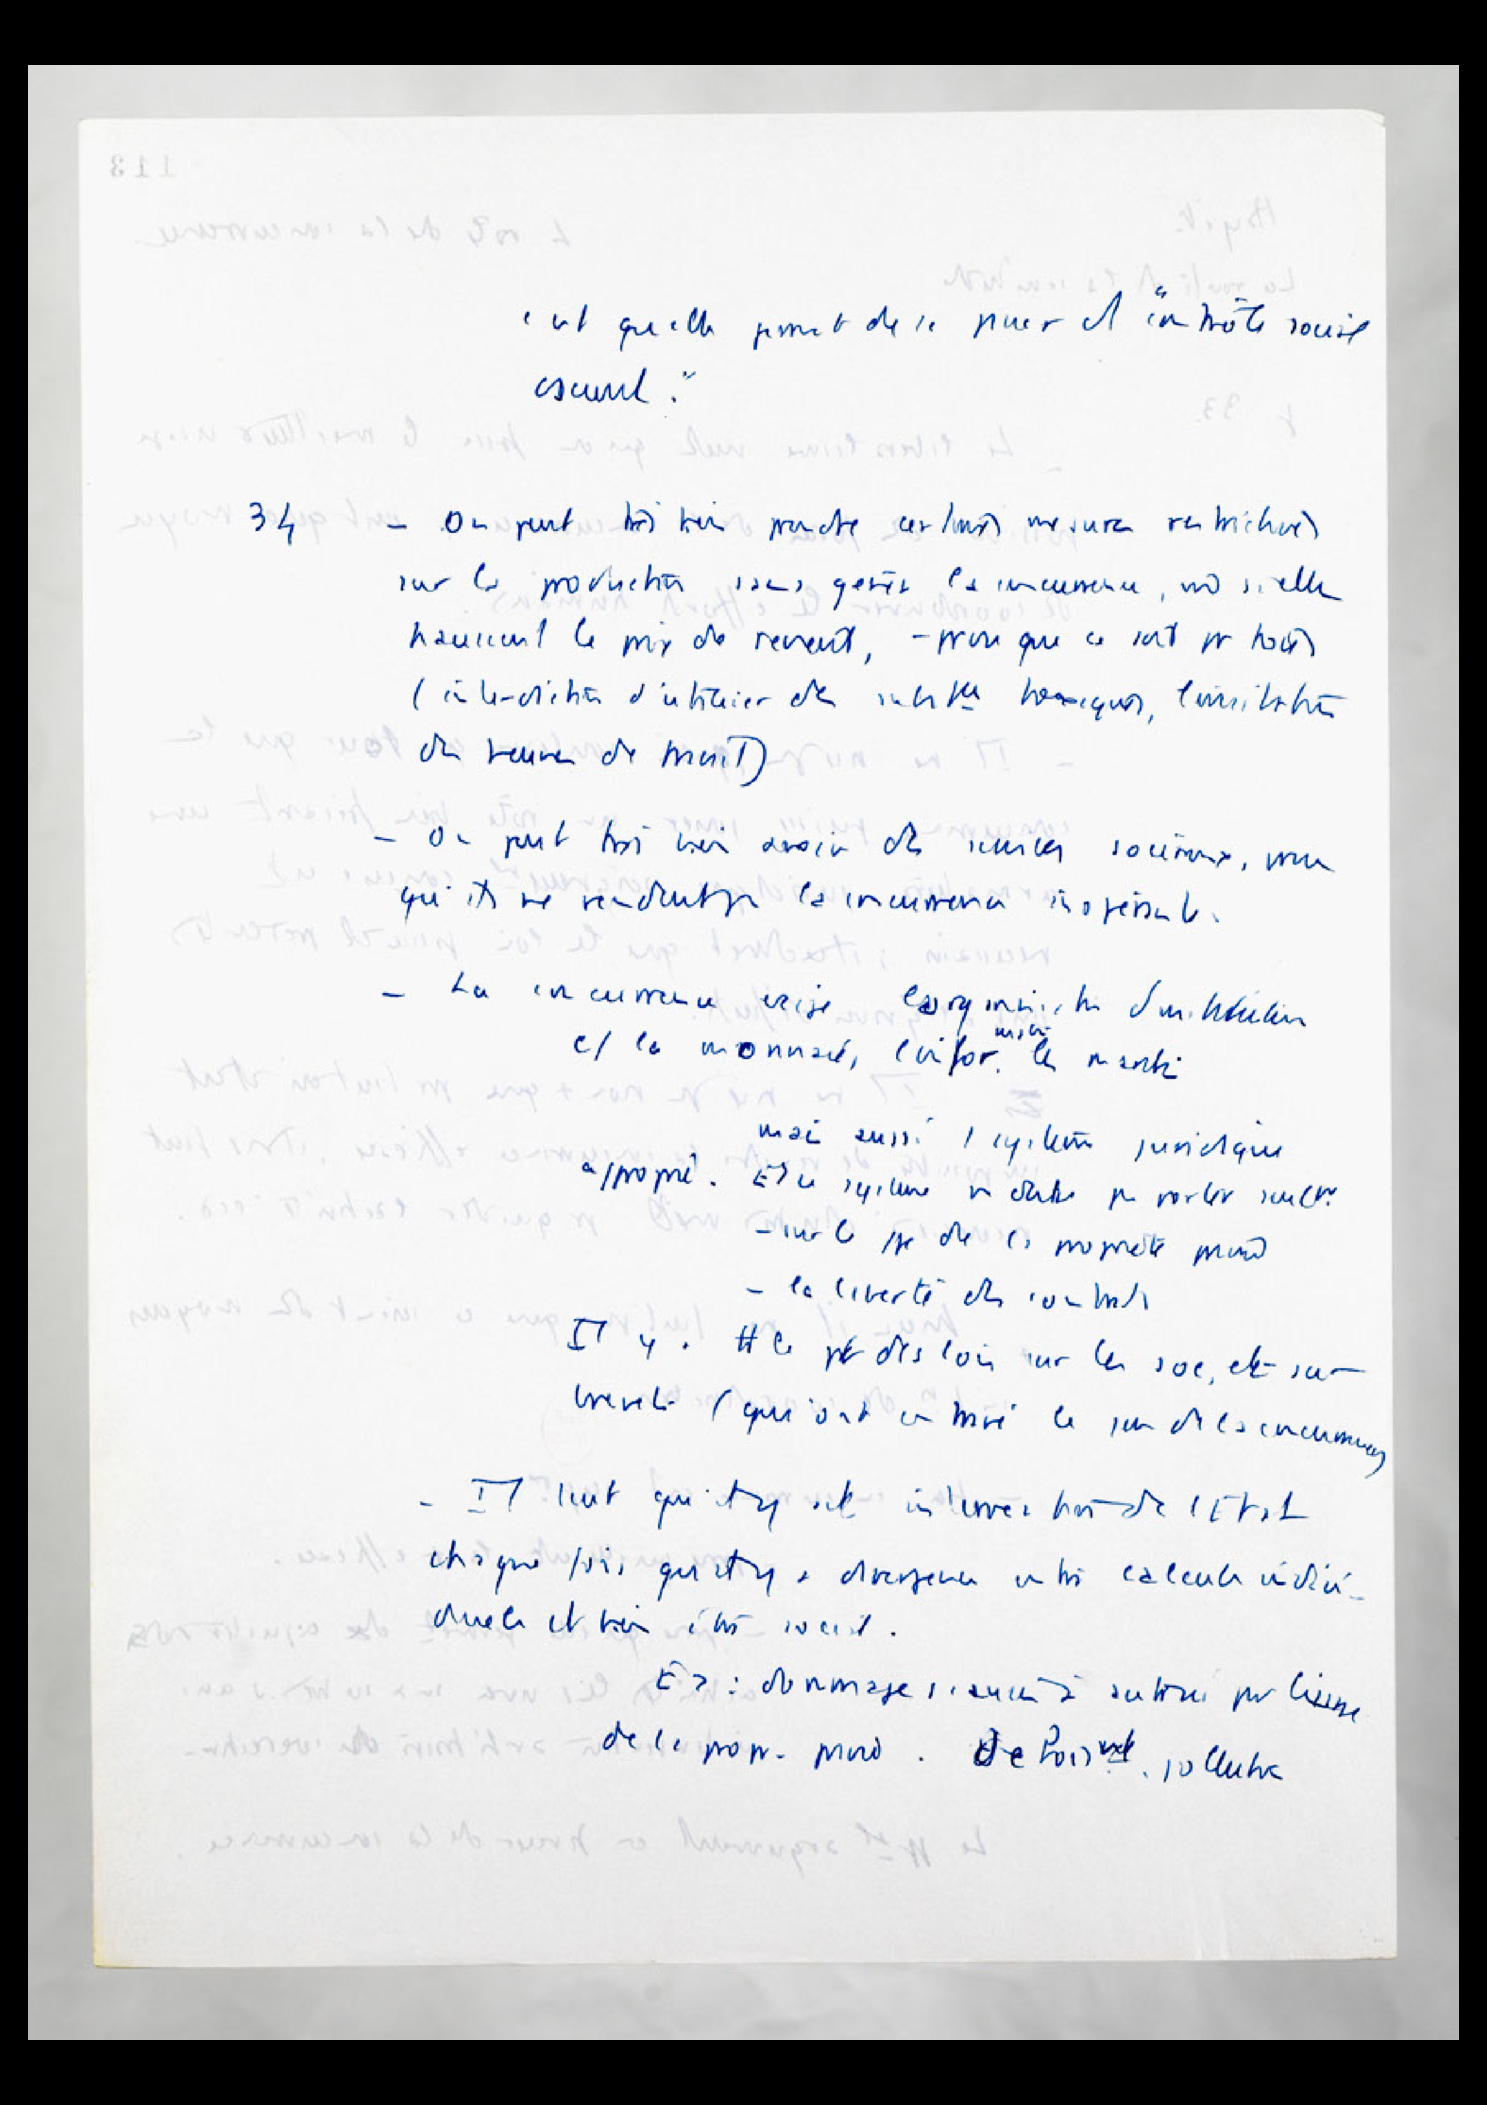 c'est qu'elle permet de se passer d'"un contrôle social
conscient."
34 - On peut très bien prendre certaines mesures restrictives
sur la production sans gêner la concurrence, même si elles
haussent le prix de revient, - pourvu que ce soit pr tous
(interdiction d'utiliser des subst toxiques, limitation
des heures de travail)
- On peut très bien avoir des services sociaux, pourvu
qu'ils ne rendent pas la concurrence inopérante.
- La concurrence exige l'organisation d'institutions
c/ la monnaie, l'infor. les marchés
mais aussi 1 système juridique
approprié. Et ce système ne doit pas porter seulem
- sur le pe de la propriété privée
- la liberté des contrats
Il y a tt le pb des lois sur les soc, et sur
brevets (qui ont entravé le jeu de la concurrence)
- Il faut qu'il y ait intervention de l'Etat
chaque fois qu'il y a divergence entre calculs indivi-
duels et bien être social.
Ex: dommages causés à autrui par l'usage
de la propr. privée. Déboisemt. pollution